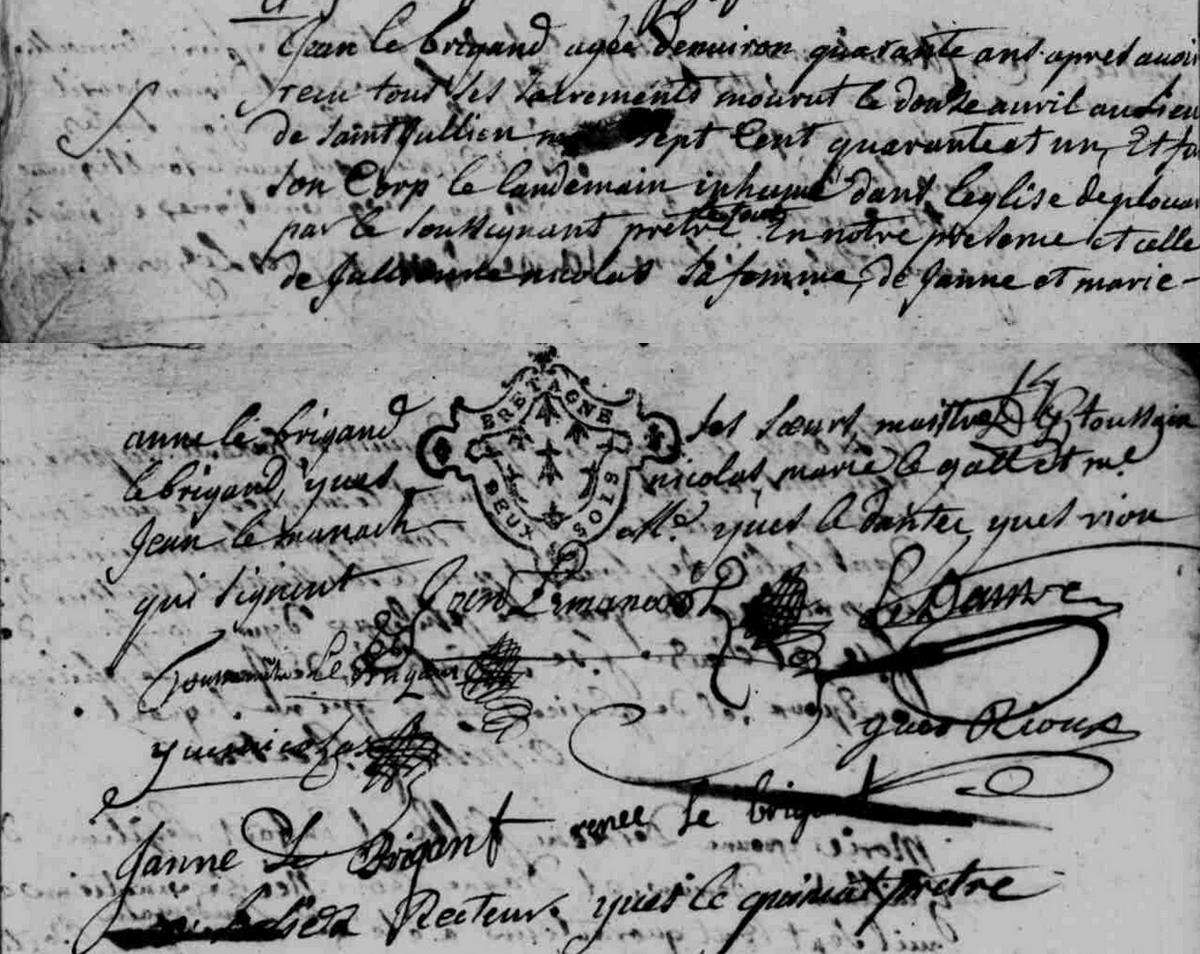 Jean le brigand agée denviron quarante ans apres avoir
receu tous ses sacrements mourut le douze avril au lieu
de saint Jullien sept cent quarante et un, Et fu
son Corp le landemain inhumé dans leglise de plouar
par le soussignant pretre En notre presence et celle
de nicolas sa femme, de Janne et marie
anne le brigand
ses sœurs, toussain
le brigand, yves
nicolas, marie le gall et me
Jean le manach
yves le dantec yves riou
qui signent
Jean Lemanach
Le Dantec
Le Brigan
yves nicolas
yves Rioux
Janne Le Brigant
renee Le brigant
Recteur. yves le pretre
BRETAGNE
DEUX SOLS